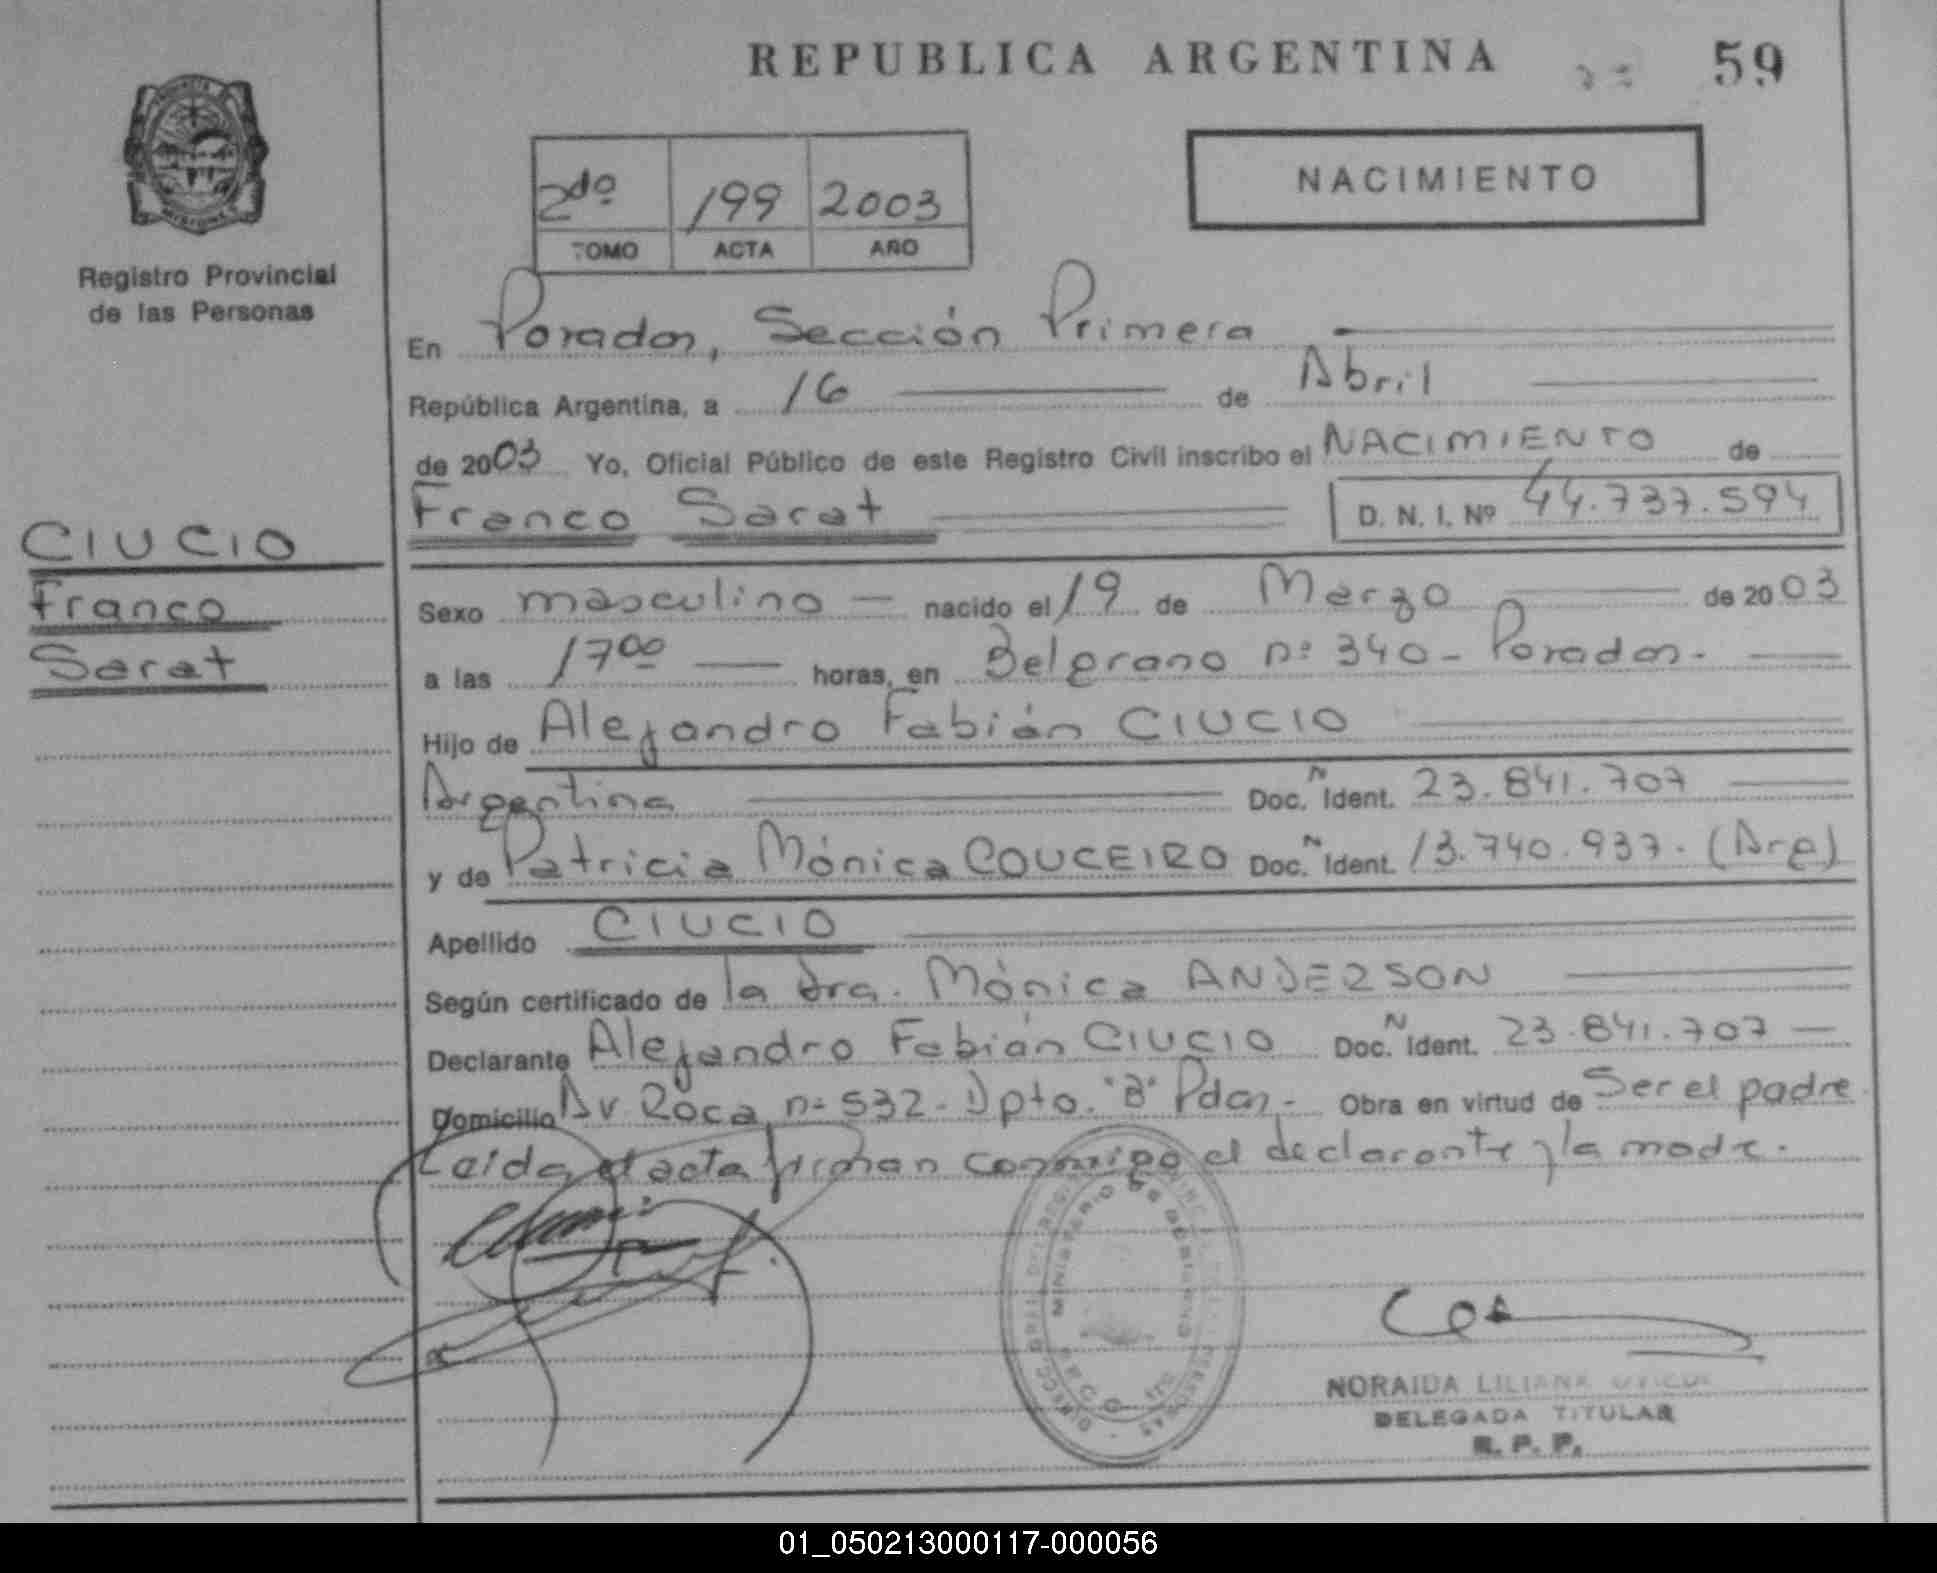 REPUBLICA ARGENTINA 59
NACIMIENTO
2do 199 2003
TOMO ACTA AÑO
PROVINCIA MISIONES
Registro Provincial
de las Personas
En Posadas, Sección Primera
República Argentina, a 16 de Abril
de 2003 Yo, Oficial Público de este Registro Civil inscribo el NACIMIENTO de
Franco Sarat D. N. I. Nº 44.737.594
CIUCIO
Franco
Sarat
Sexo masculino nacido el 19 de Marzo de 2003
a las 17 00 horas, en Belgrano nº 340 - Posadas.
Hijo de Alejandro Fabián CIUCIO
Argentina Doc. N Ident. 23.841.707
y de Patricia Mónica COUCEIRO Doc. N Ident. 13.740.937. (Arg)
Apellido CIUCIO
Según certificado de la Dra. Mónica ANDERSON
Declarante Alejandro Fabián CIUCIO Doc. N Ident. 23.841.707
Domicilio Av. Roca nº 532 - Dpto. "B" Pdas. Obra en virtud de Ser el padre
Leída el acta firman conmigo el declarante y la madre.
MINISTERIO DE GOBIERNO
NORAIDA LILIANA
DELEGADA TITULAR
R. P. P.
01_050213000117-000056